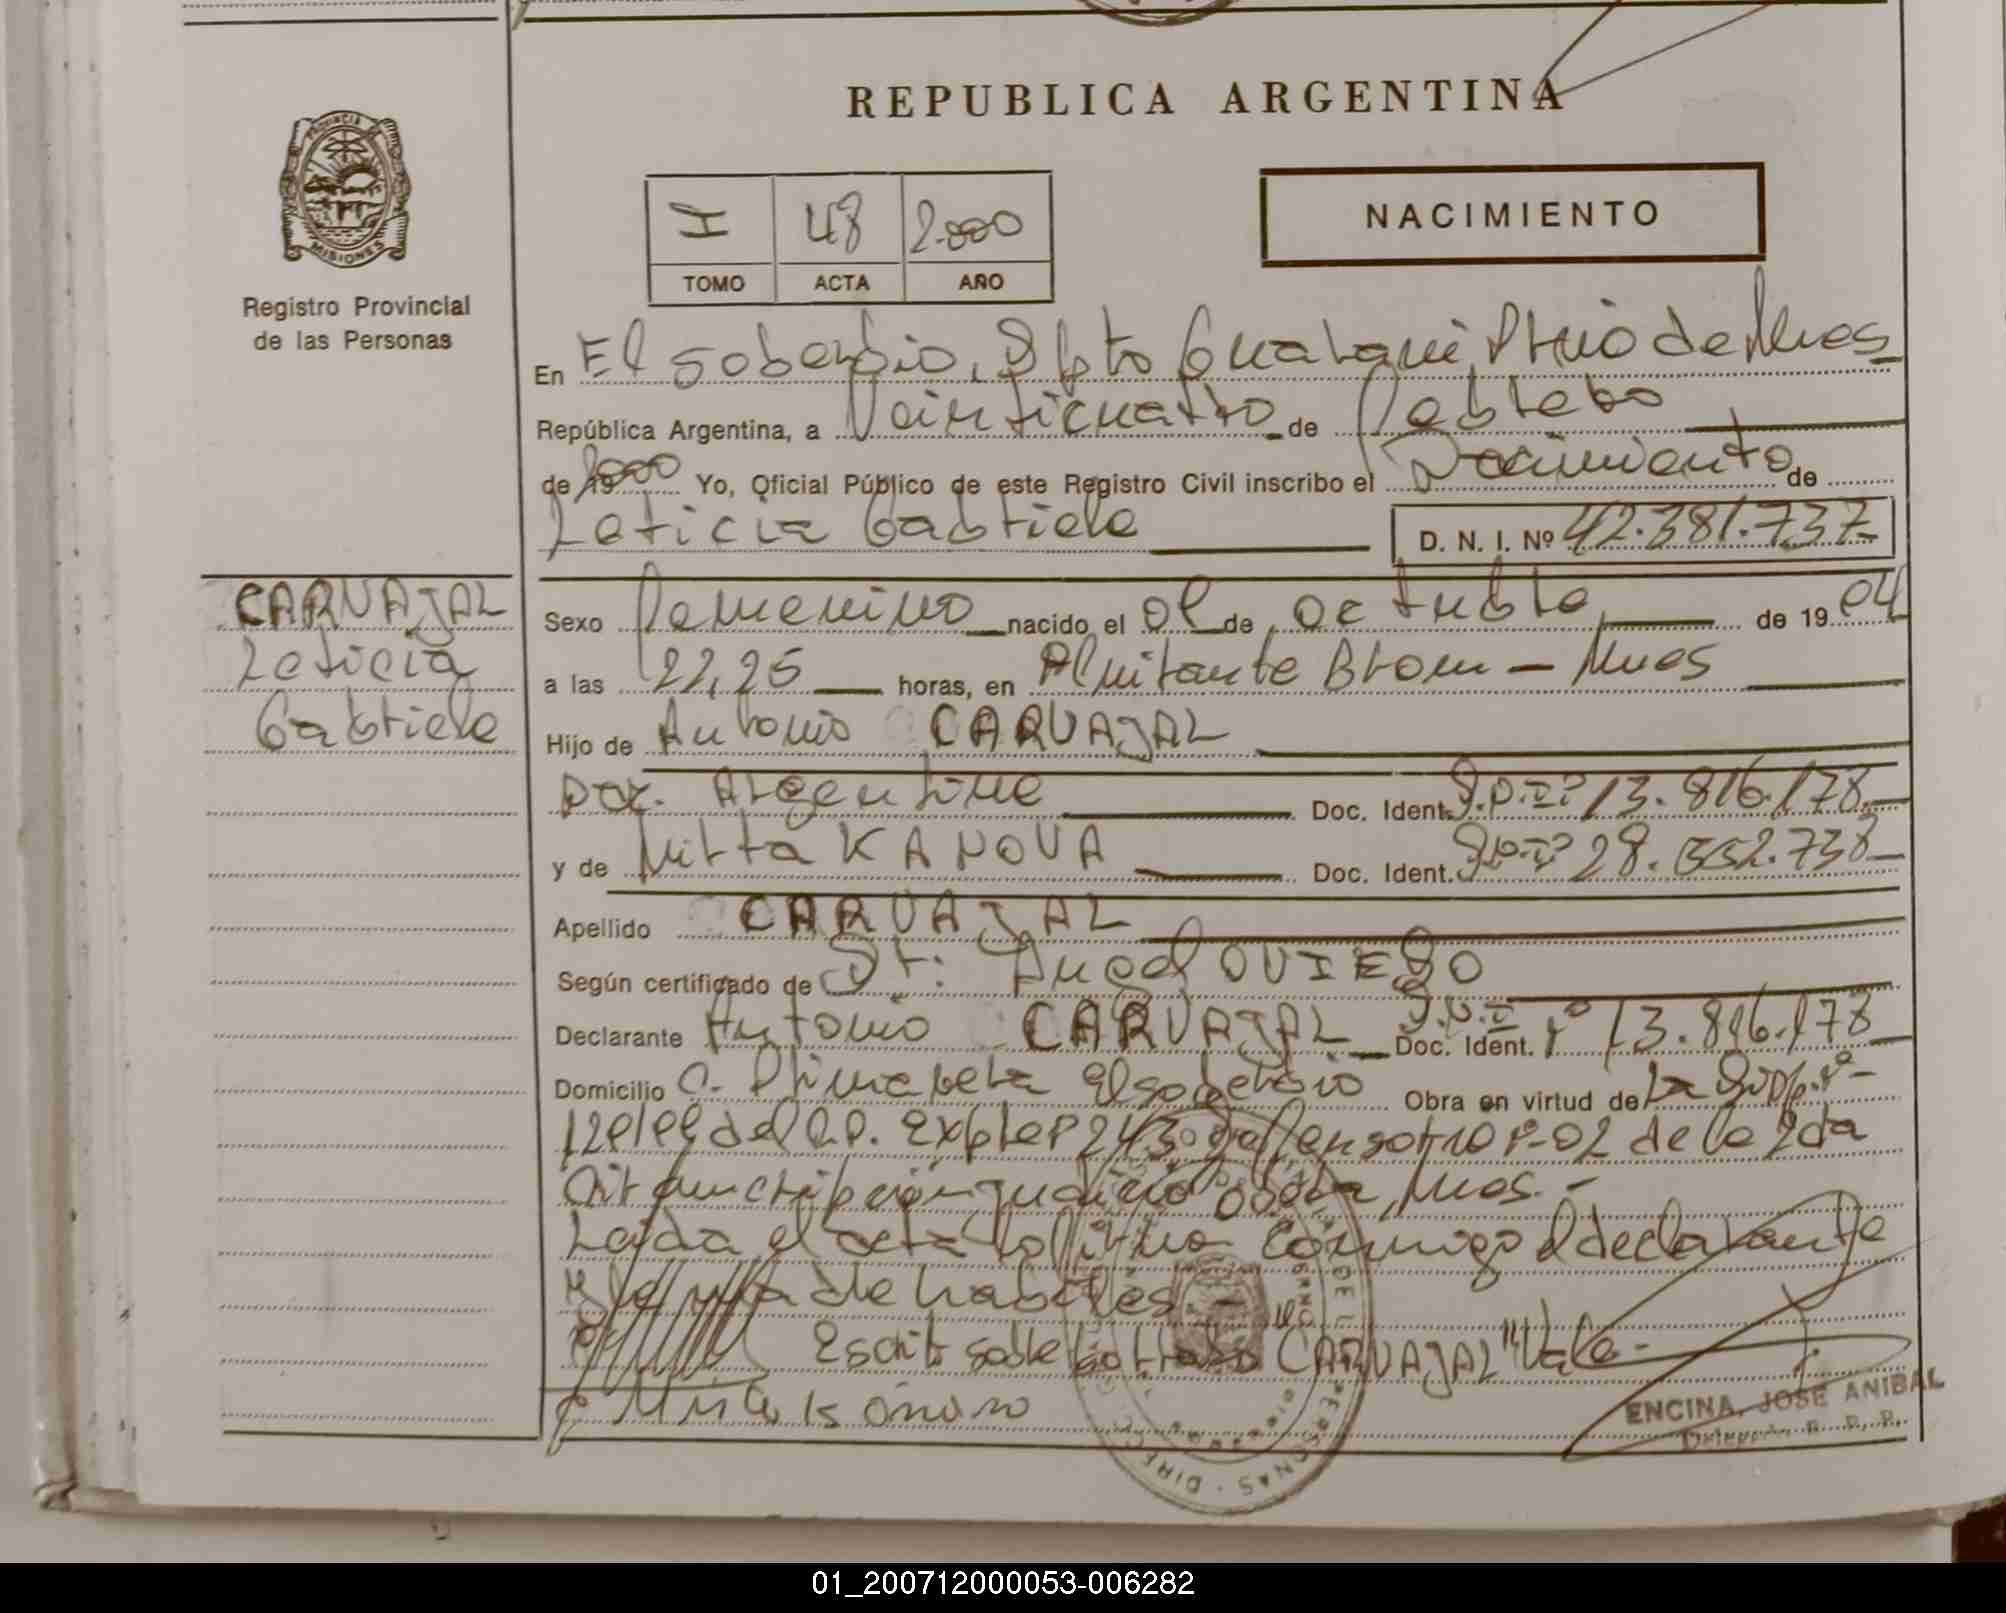 REPUBLICA ARGENTINA
PROVINCIA
MISIONES
Registro Provincial
de las Personas
I 48 2.000
TOMO ACTA AÑO
NACIMIENTO
En El soberbio, Dpto Guarani Ptrio de Mnes
República Argentina, a Veinticuatro de Febrero
de 19 2000 Yo, Oficial Público de este Registro Civil inscribo el Nacimiento de
Leticia Gabriela D. N. I. Nº 42.381.737
CARVAJAL
Leticia
Gabriela
Sexo Femenino nacido el 01 de octubre de 19 94
a las 22,25 horas, en Almirante Brown - Mnes
Hijo de Antonio CARVAJAL
Nac. Argentina Doc. Ident. D.N.I. 13.816.178
y de Mirta KANOVA Doc. Ident. D.N.I. 28.352.738
Apellido CARVAJAL
Según certificado de Dr: Angel OVIEDO
Declarante Antonio CARVAJAL Doc. Ident. D.N.I. Nº 13.816.178
Domicilio C. Primavera El soberbio Obra en virtud de La Disp. Nº
del R.P. Expte Nº 02 de la 2da
Circunscripción judicial Oberá, Mnes.-
Leida el acta la firma conmigo el declarante
de habiles -
Escrito sobre borrado "CARVAJAL" Vale -
ENCINA, JOSE ANIBAL
Delegado R. P. P.
01_200712000053-006282